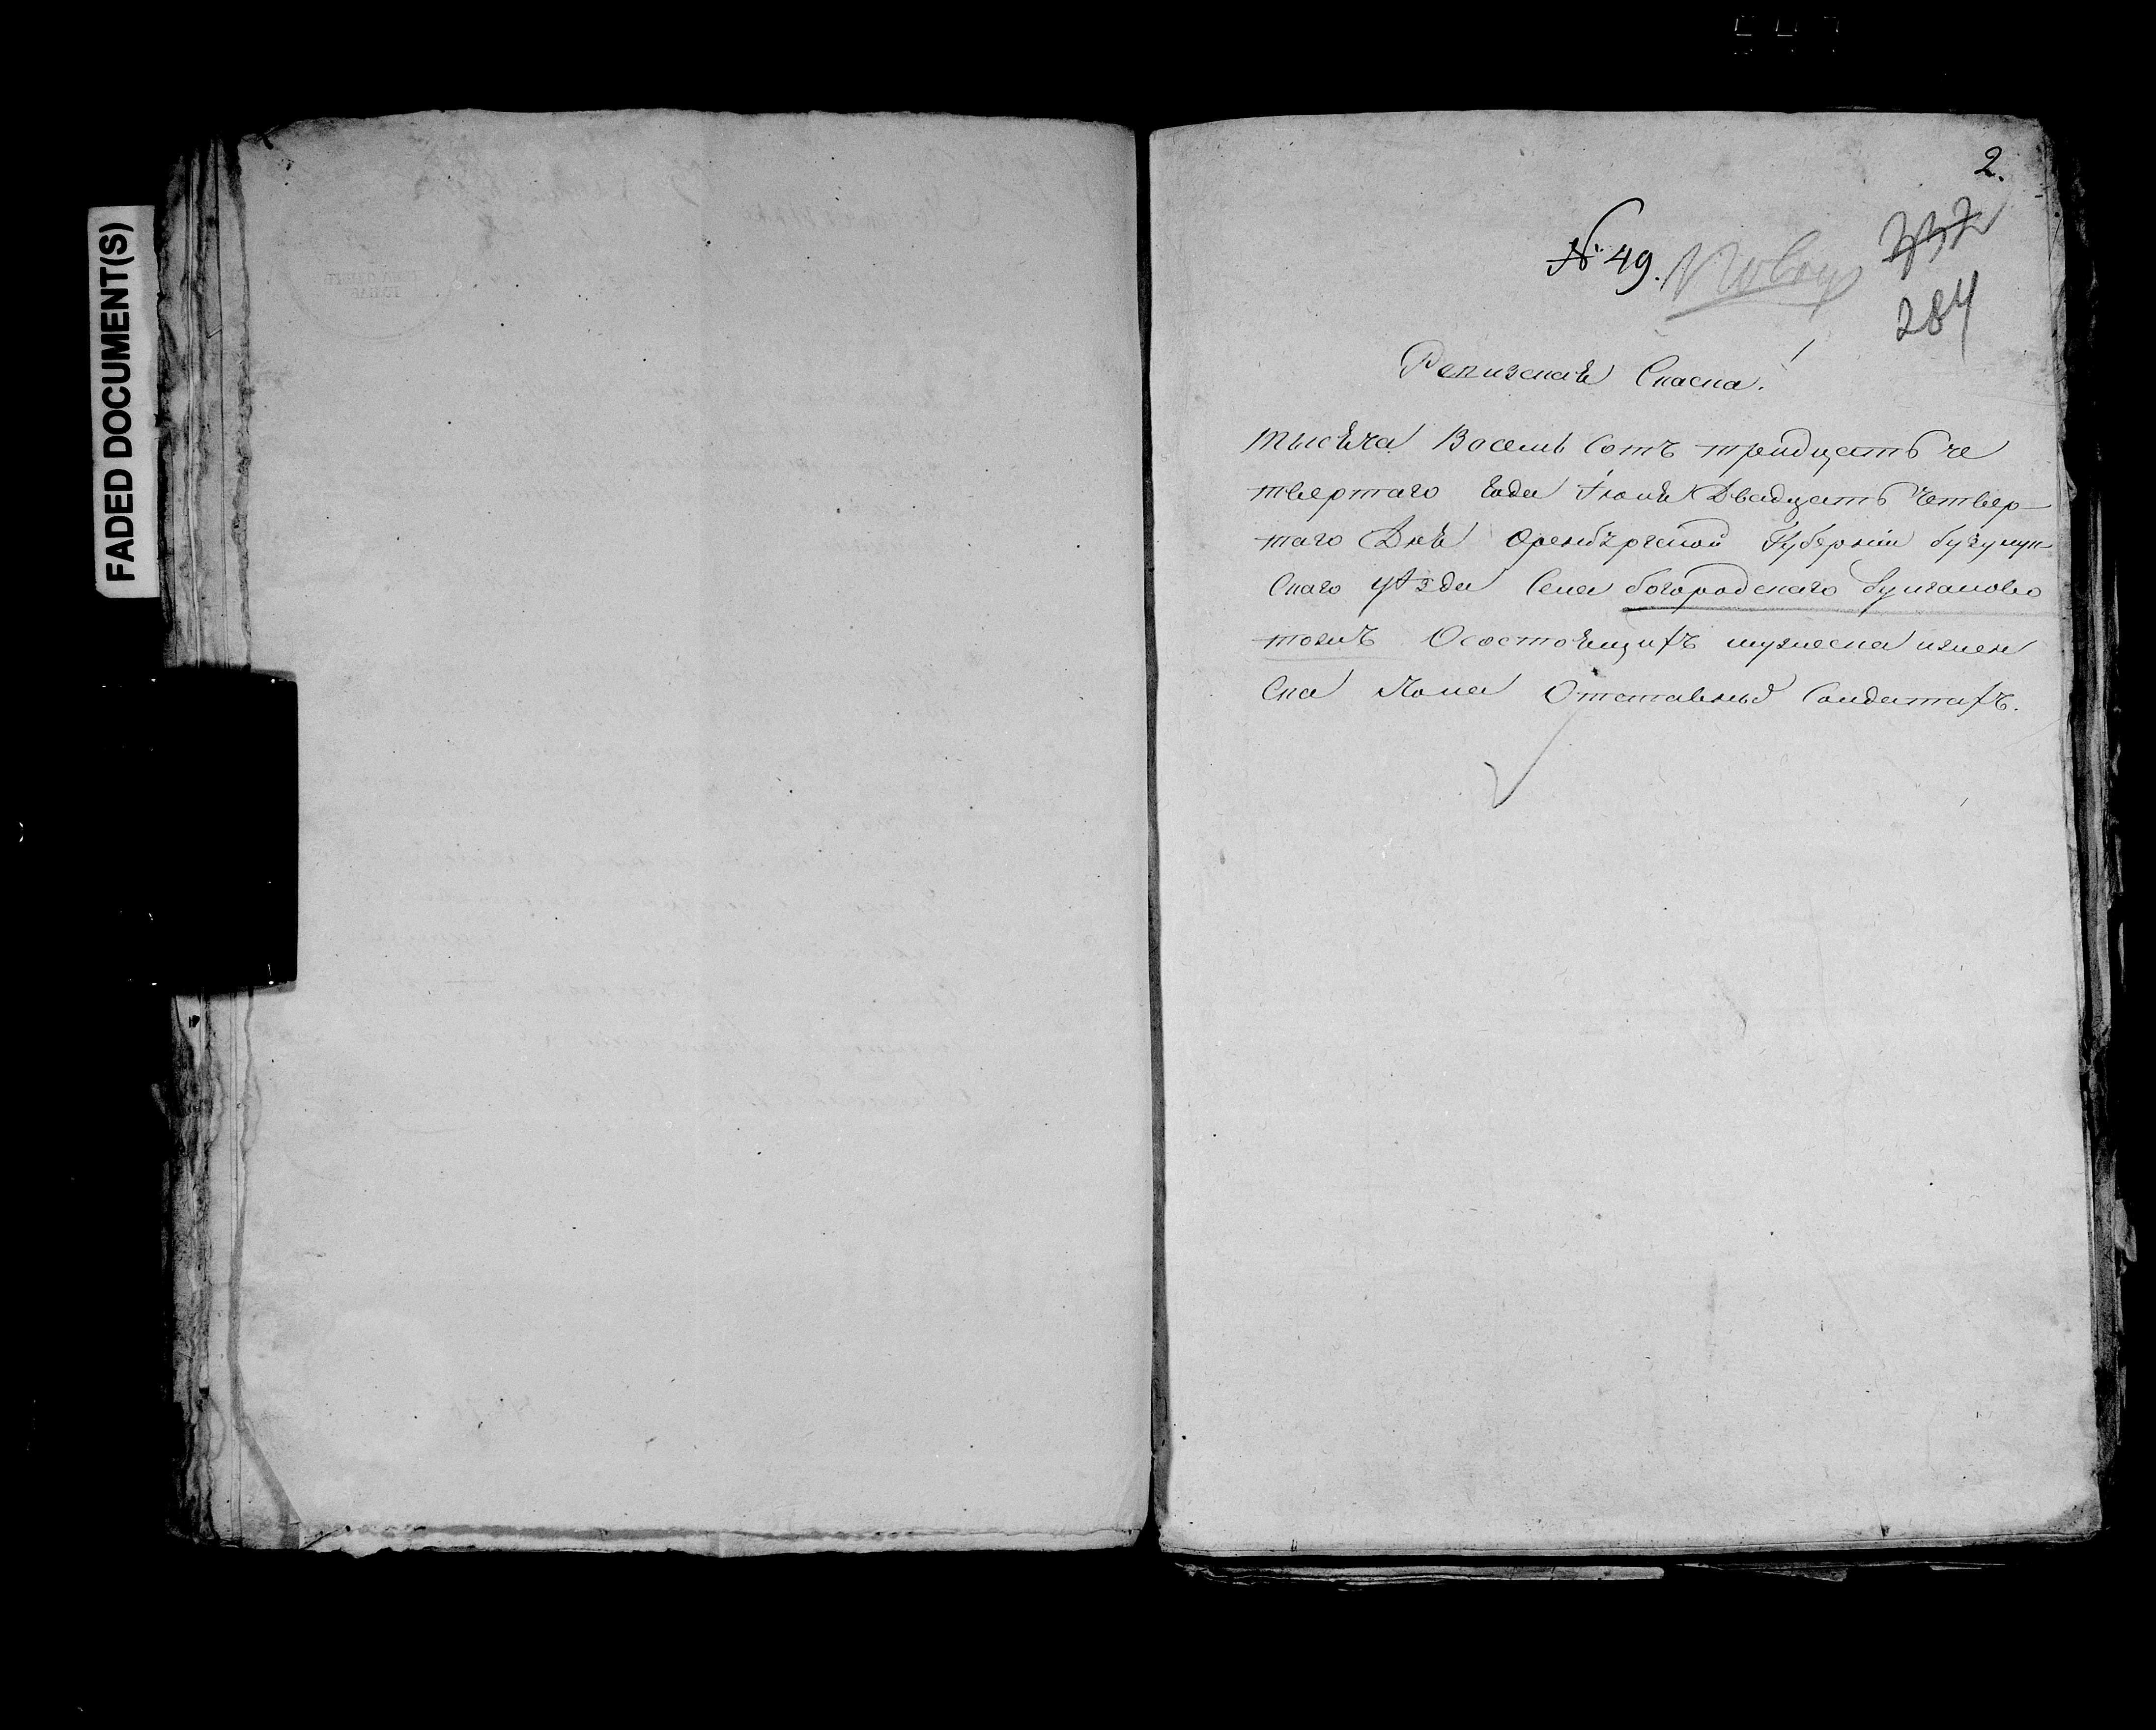 FADED DOCUMENT(S)
2.
№ 49.
332
284
Ревизская Скаска.
тысѣча Восемь Сотъ тридцать че
твертаго Года Іюнѣ Двадцать Четвер-
таго Днѣ Оренбургской Губерніи бузулук-
Скаго уѣзда Села богородскаго
тожъ Осостоѣщихъ мужеска ижен
Ска Пола Отставныхъ Солдатахъ.